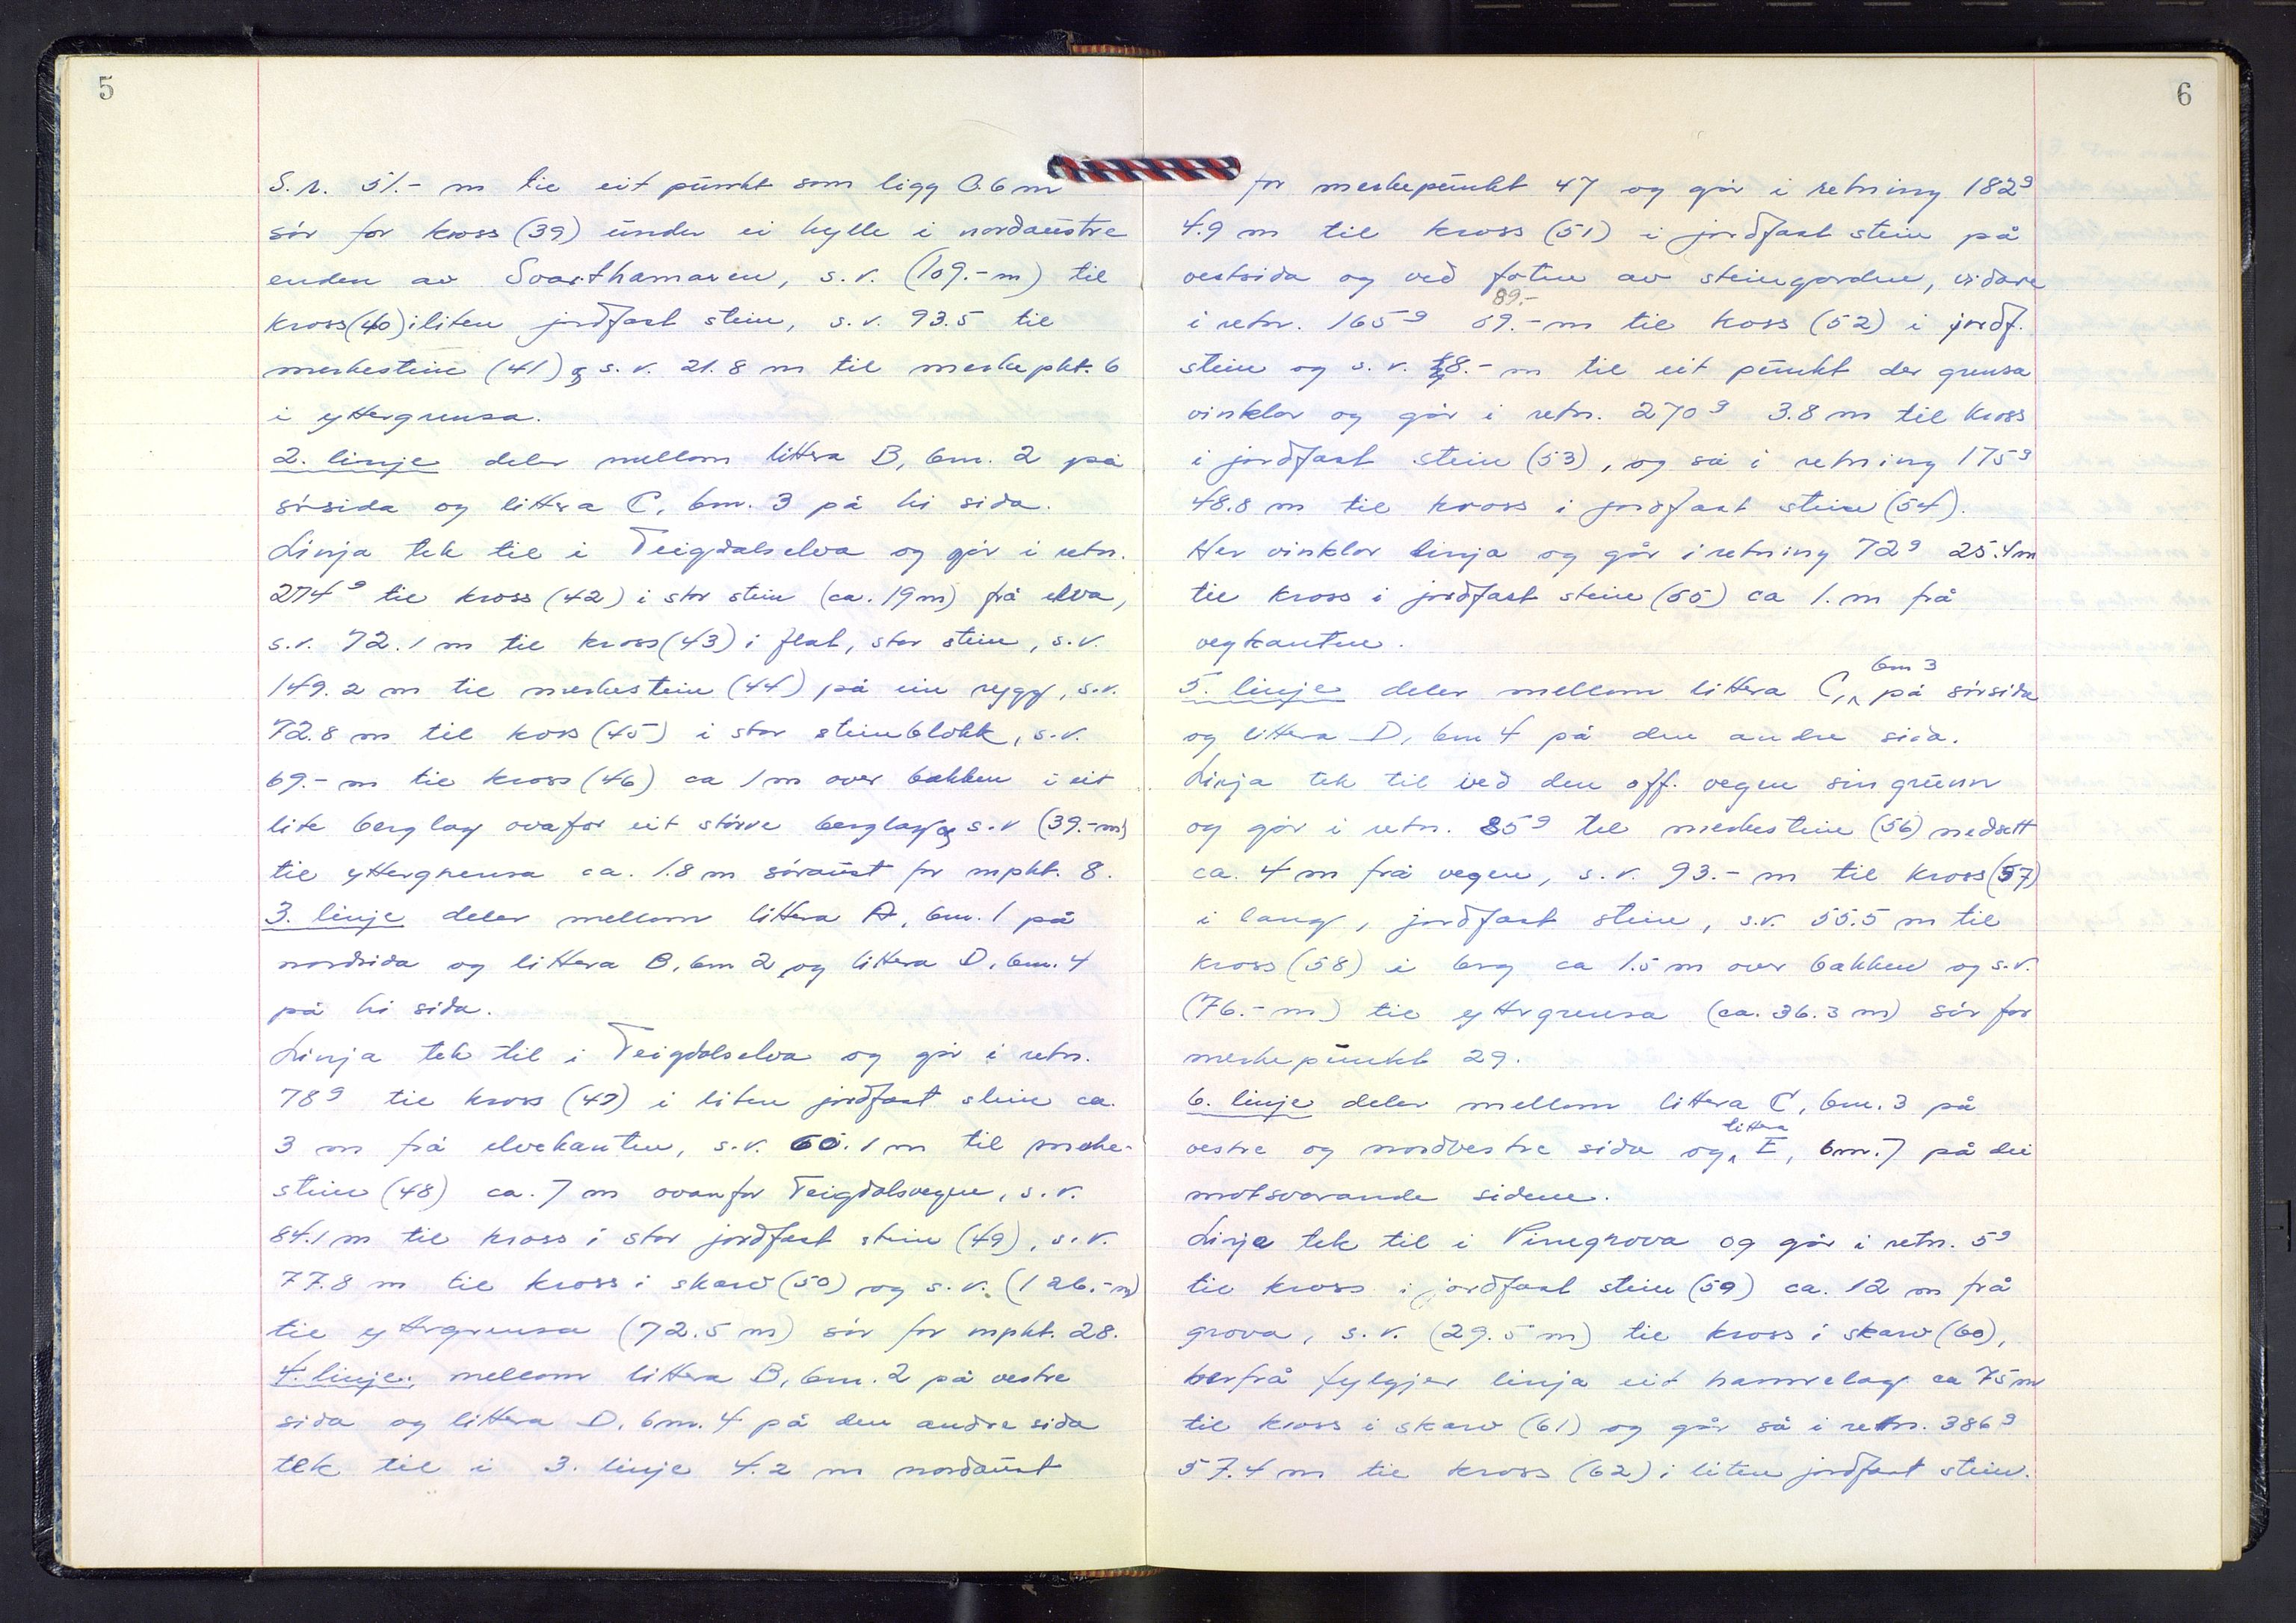 5
S.r. 51.- m til eit punkt som ligg 0.6 m
sör for kross (39) under ei hylle i nordaustre
enden av Svarthamaren, s.v. (109.- m) til
kross (40) i liten jordfast stein, s.v. 93.5 til
merkestein (41) og s.v. 21.8 m til merkepkt. 6
i yttergrensa.
2. linje deler mellom littera B, bm. 2 på
sörsida og littera C, bm. 3 på hi sida.
Linja tek til i Teigdalselva og går i retn.
274g til kross (42) i stor stein (ca. 19 m) frå elva,
s.v. 72.1 m til kross (43) i flat, stor stein, s.v.
149.2 m til merkestein (44) på ein rygg, s.v.
72.8 m til koss (45) i stor steinblokk, s.v.
69.- m til kross (46) ca 1 m over bakken i eit
lite berglag ovafor eit större berglag og s.v (39.- m)
til yttergrensa ca. 1.8 m söraust for mpkt. 8.
3. linje deler mellom littera A, bm. 1 på
nordsida og littera B, bm 2 og littera D, bm. 4
på hi sida.
Linja tek til i Teigdalselva og går i retn.
78g til kross (47) i liten jordfast stein ca.
3 m frå elvekanten, s.v. 60.1 m til merke-
stein (48) ca. 7 m ovanfor Teigdalsvegen, s.v.
84.1 m til kross i stor jordfast stein (49), s.v.
77.8 m til kross i skarv (50) og s.v. (126.- m)
til yttergrensa (72.5 m) sör for mpkt. 28.
4. linje. mellom littera B, bm. 2 på vestre
sida og littera D, bm. 4 på den andre sida
tek til i 3. linje 4.2 m nordaust
6
for merkepunkt 47 og går i retning 182g
4.9 m til kross (51) i jordfast stein på
vestsida og ved foten av steingarden, vidare
89.-
i retn. 165g 89.- m til koss (52) i jordf.
stein og s.v. 8.- m til eit punkt der grensa
vinklar og går i retn. 270g 3.8 m til kross
i jordfast stein (53), og så i retning 175g
48.8 m til kross i jordfast stein (54).
Her vinklar linja og går i retning 72g 25.4 m
til kross i jordfast stein (55) ca 1. m frå
vegkanten.
bm 3
5. linje deler mellom littera C, på sörsida
og littera D, bm 4 på den andre sida.
Linja tek til ved den off. vegen sin grunn
og går i retn. 85g til merkestein (56) nedsett
ca. 4 m frå vegen, s.v. 93.- m til kross (57)
i lang, jordfast stein, s.v. 55.5 m til
kross (58) i berg ca 1.5 m over bakken og s.v.
(76.- m) til yttergrensa (ca. 36.3 m) sör for
merkepunkt 29.
6. linje deler mellom littera C, bm. 3 på
littera
vestre og nordvestre sida og E, bm. 7 på dei
motsvarande sidene.
Linja tek til i Vinegrova og går i retn. 5g
til kross i jordfast stein (59) ca. 12 m frå
grova, s.v. (29.5 m) til kross i skarv (60),
herfrå fylgjer linja eit hamrelag ca 75 m
til kross i skarv (61) og går så i retn. 386g
57.4 m til kross (62) i liten jordfast stein.